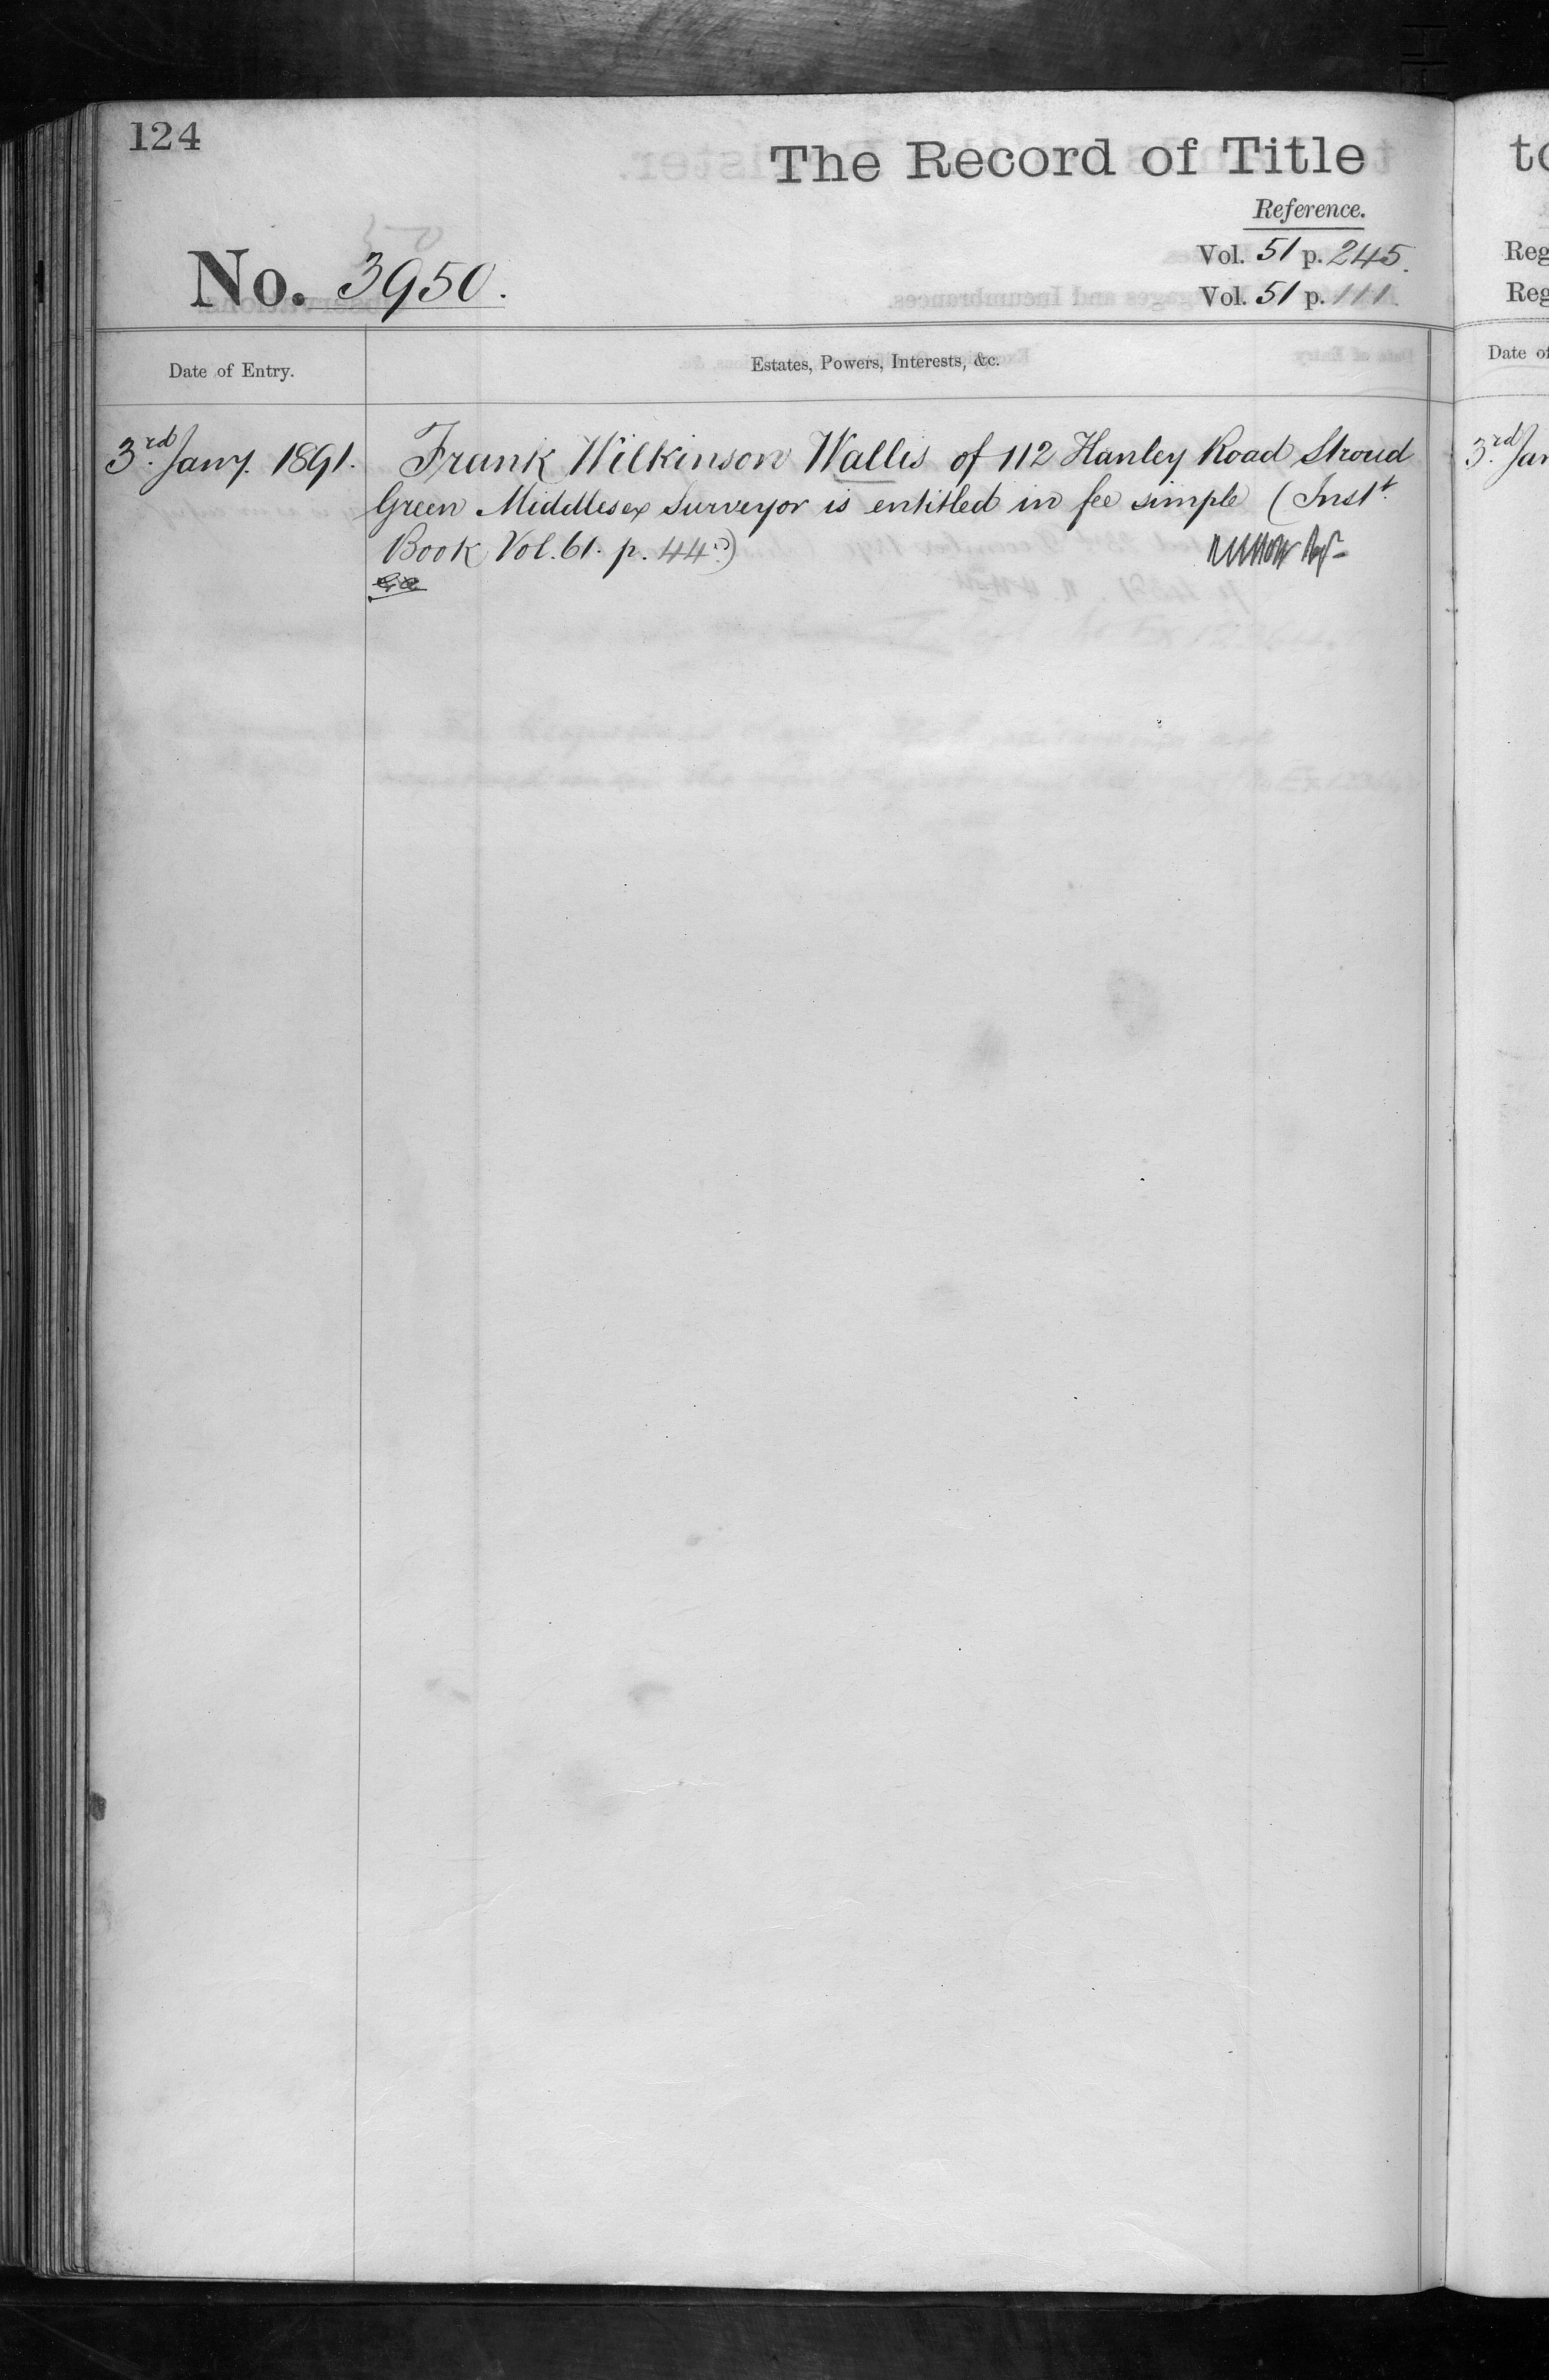 124
The Record of Title
Reference.
Vol. 51 p. 245.
No. 3950.
Vol. 51 p. 111.
Date of Entry.
Estates, Powers, Interests, &c.
3rd. Jany. 1891.
Frank Wilkinson Wallis of 112 Hanley Road Stroud
Green Middlesex Surveyor is entitled in fee simple (Inst.
Book Vol. 61. p. 44)
to
Reg
Reg
Date of
3rd. Jan